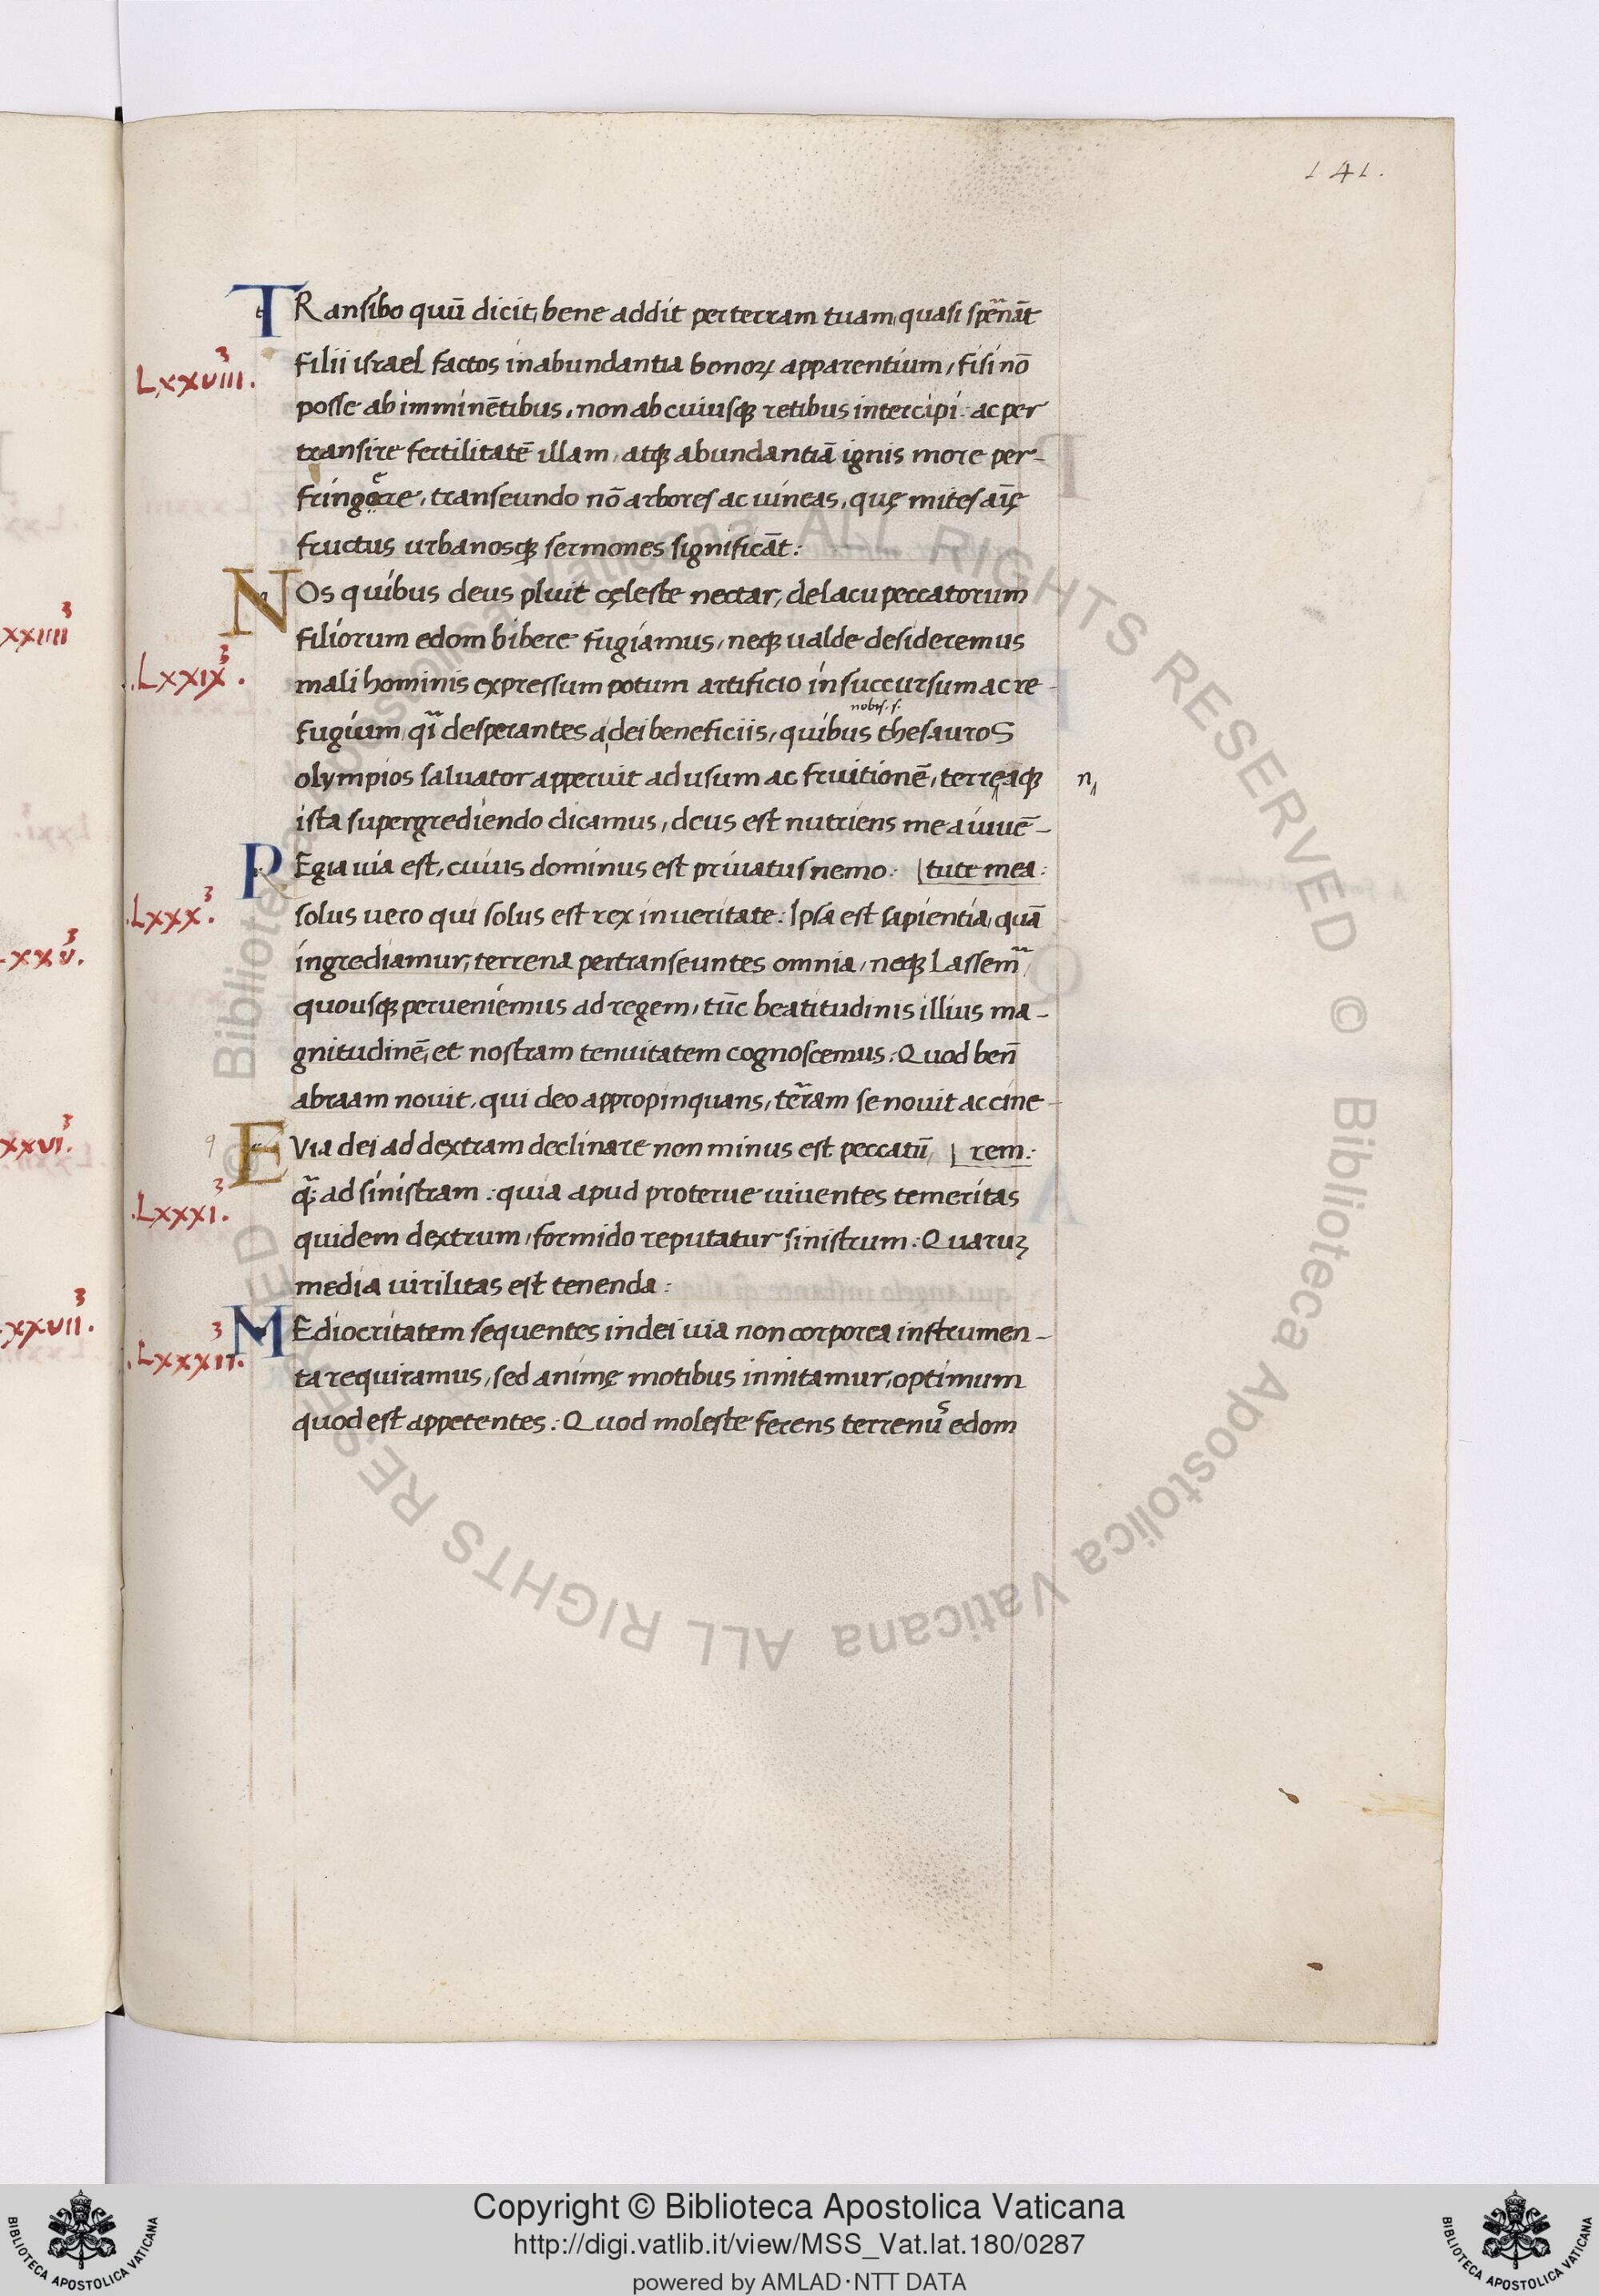 141.
TRansibo quū dicit, bene addit per terram tuam, quasi sper̃nāt
Lxxviii.3
filii israel factos in abundantia bonoꝝ apparentium, fisi nō
posse ab imminētibus, non ab cuiusꝙ retibus intercipi: ac per
transire fertilitatē illam, atꝙ abundantiā ignis more per-
fringere, transeundo nō arbores ac uineas, quę mites aīę
fructus urbanosꝙ sermones significāt:
NOs quibus deus pluit cęleste nectar, de lacu peccatorum
filiorum edom bibere fugiamus, neqꝫ ualde desideremus
.Lxxix.3
mali hominis expressum potum artificio in succursum ac re-
nobis.s.
fugium, qͥ desperantes a dei beneficiis, quibus thesauros
olympios saluator apperuit ad usum ac fruitionē, terręaqꝫ n
ista supergrediendo dicamus, deus est nutriens me a iuuē-
REgia uia est, cuius dominus est priuatus nemo: tute mea:
.Lxxx.3
solus uero qui solus est rex in ueritate: Ipsa est sapientia, quā
ingrediamur, terrena pertranseuntes omnia, neqꝫ lassem̃
quousqꝫ perueniemus ad regem, tūc beatitudinis illius ma-
gnitudinē, et nostram tenuitatem cognoscemus: Quod ben̄
abraam nouit, qui deo appropinquans, ter̃am se nouit ac cine-
E Via dei ad dextram declinare non minus est peccatū, rem:
.Lxxxi.3
q̃ ad sinistram: quia apud proterue uiuentes temeritas
quidem dextrum, formido reputatur sinistrum: Quaruꝫ
media uirilitas est tenenda:
MEdiocritatem sequentes in dei uia non corporea instrumen-
.Lxxxii.3
ta requiramus, sed animę motibus innitamur, optimum
quod est appetentes: Quod moleste ferens terrenus edom
xxiiii3
-xxv.3
xxvi.3
-xxvii.3
Copyright © Biblioteca Apostolica Vaticana
http://digi.vatlib.it/view/MSS_Vat.lat.180/0287
powered by AMLAD·NTT DATA
BIBLIOTECA APOSTOLICA VATICANA
BIBLIOTECA APOSTOLICA VATICANA
© Biblioteca Apostolica Vaticana ALL RIGHTS RESERVED © Biblioteca Apostolica Vaticana ALL RIGHTS RESERVED